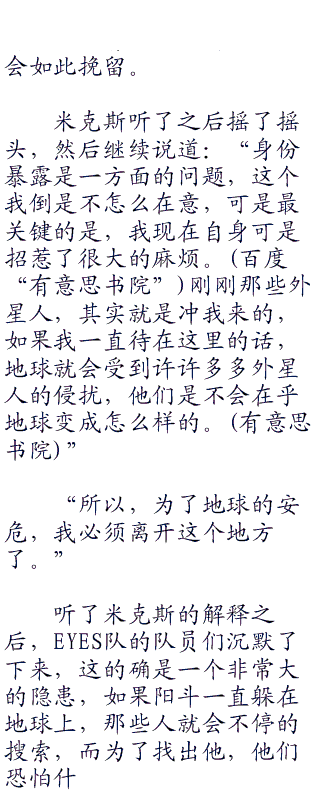 会如此挽留。
米克斯听了之后摇了摇
头，然后继续说道：“身份
暴露是一方面的问题，这个
我倒是不怎么在意，可是最
关键的是，我现在自身可是
招惹了很大的麻烦。(百度
“有意思书院”)刚刚那些外
星人，其实就是冲我来的，
如果我一直待在这里的话，
地球就会受到许许多多外星
人的侵扰，他们是不会在乎
地球变成怎么样的。(有意思
书院)”
“所以，为了地球的安
危，我必须离开这个地方
了。”
听了米克斯的解释之
后，EYES队的队员们沉默了
下来，这的确是一个非常大
的隐患，如果阳斗一直躲在
地球上，那些人就会不停的
搜索，而为了找出他，他们
恐怕什